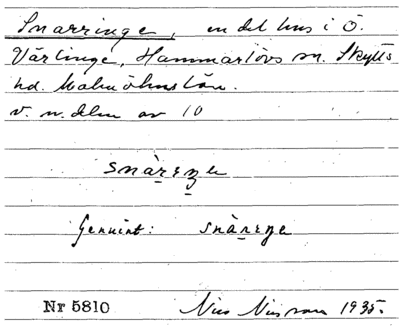 Snarringe, en del hus i Ö.
Värlinge, Hammarlövs sn. Skytts
hd. Malmöhus län.
v. n. delen av 10
snàrɪŋe
Genuint: snàrɪŋe
Nr 5810 Nils Nilsson 1935.